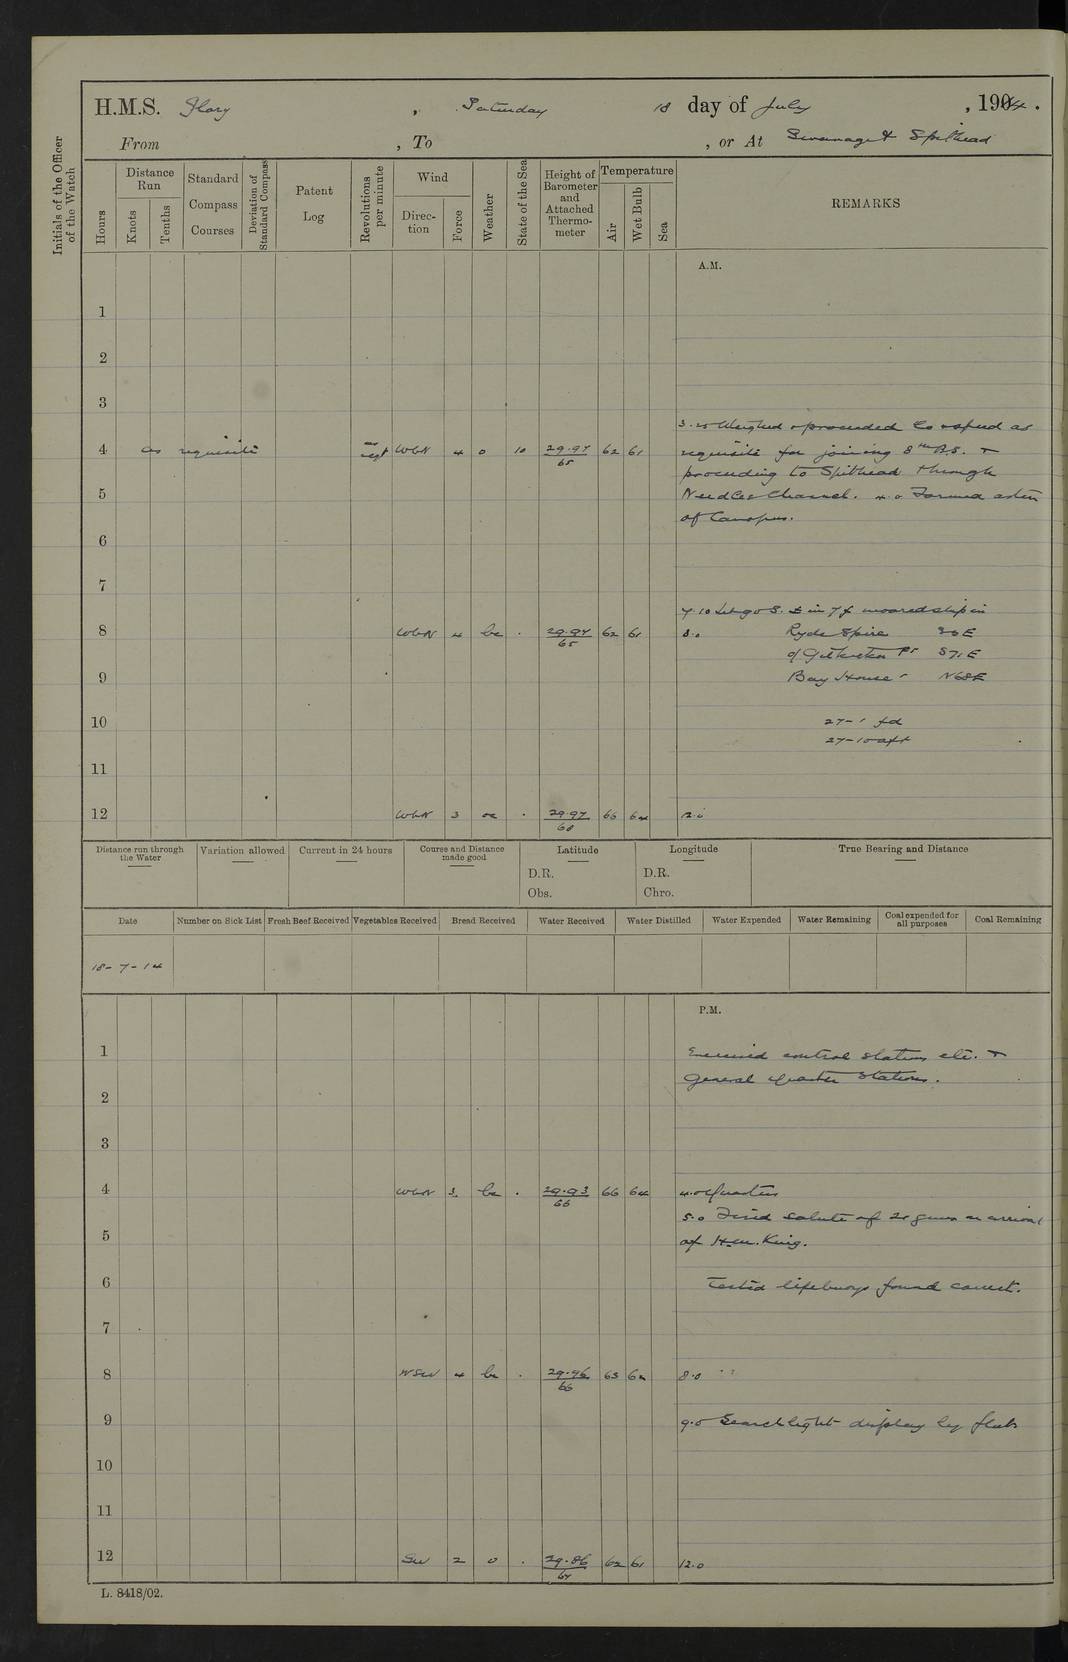 H.M.S. Glory , Saturday 18 day of July , 1904 .
From , To , or At Swanage & Spithead
Initials of the Officer of the Watch
Hours
Distance Run
Knots
Tenths
Standard Compass Courses
Deviation of Standard Compass
Patent Log
Revolutions per minute
Wind
Direc-tion
Force
Weather
State of the Sea
Height of Barometer and Attached Thermo-meter
Temperature
Air
Wet Bulb
Sea
REMARKS
A.M.
1
2
3
Weighed & proceeded Co & speed as
4 as requisite as reqt WbN 4 o 10 29.97/65 62 61 requisite for joining 8th B.S. &
proceeding to Spithead through
5 Needles Channel. 4.0 Formed astern
of Canopus.
6
7
7.10 Let go S. in 7 f moored ship in
8 WbN 4 bc . 29.97/65 62 61 8.0 Ryde Spire
Pt S71E
9 Bay House N68E
10 27-1 fd
27-10 aft
11
12 WbN 3 oc . 29.97/68 66 64 12.0
Distance run through the Water
Variation allowed
Current in 24 hours
Course and Distance made good
Latitude
D.R.
Obs.
Longitude
D.R.
Chro.
True Bearing and Distance
Date
Number on Sick List
Fresh Beef Received
Vegetables Received
Bread Received
Water Received
Water Distilled
Water Expended
Water Remaining
Coal expended for all purposes
Coal Remaining
18-7-14
P.M.
1 Exercised control stations etc. &
General Quarter Stations.
2
3
4 WbN 3. bc . 29.93/66 66 64 4.0 Quarters
5.0 Fired salute of 21 guns on arrival
5 of H.M. King.
6 Tested lifebuoys found correct.
7
8 WSW 4 bc . 29.96/66 63 8.0
9 9.0 Searchlight display by fleet
10
11
12 SW 2 o . 29.86/64 62 61 12.0
L. 8418/02.